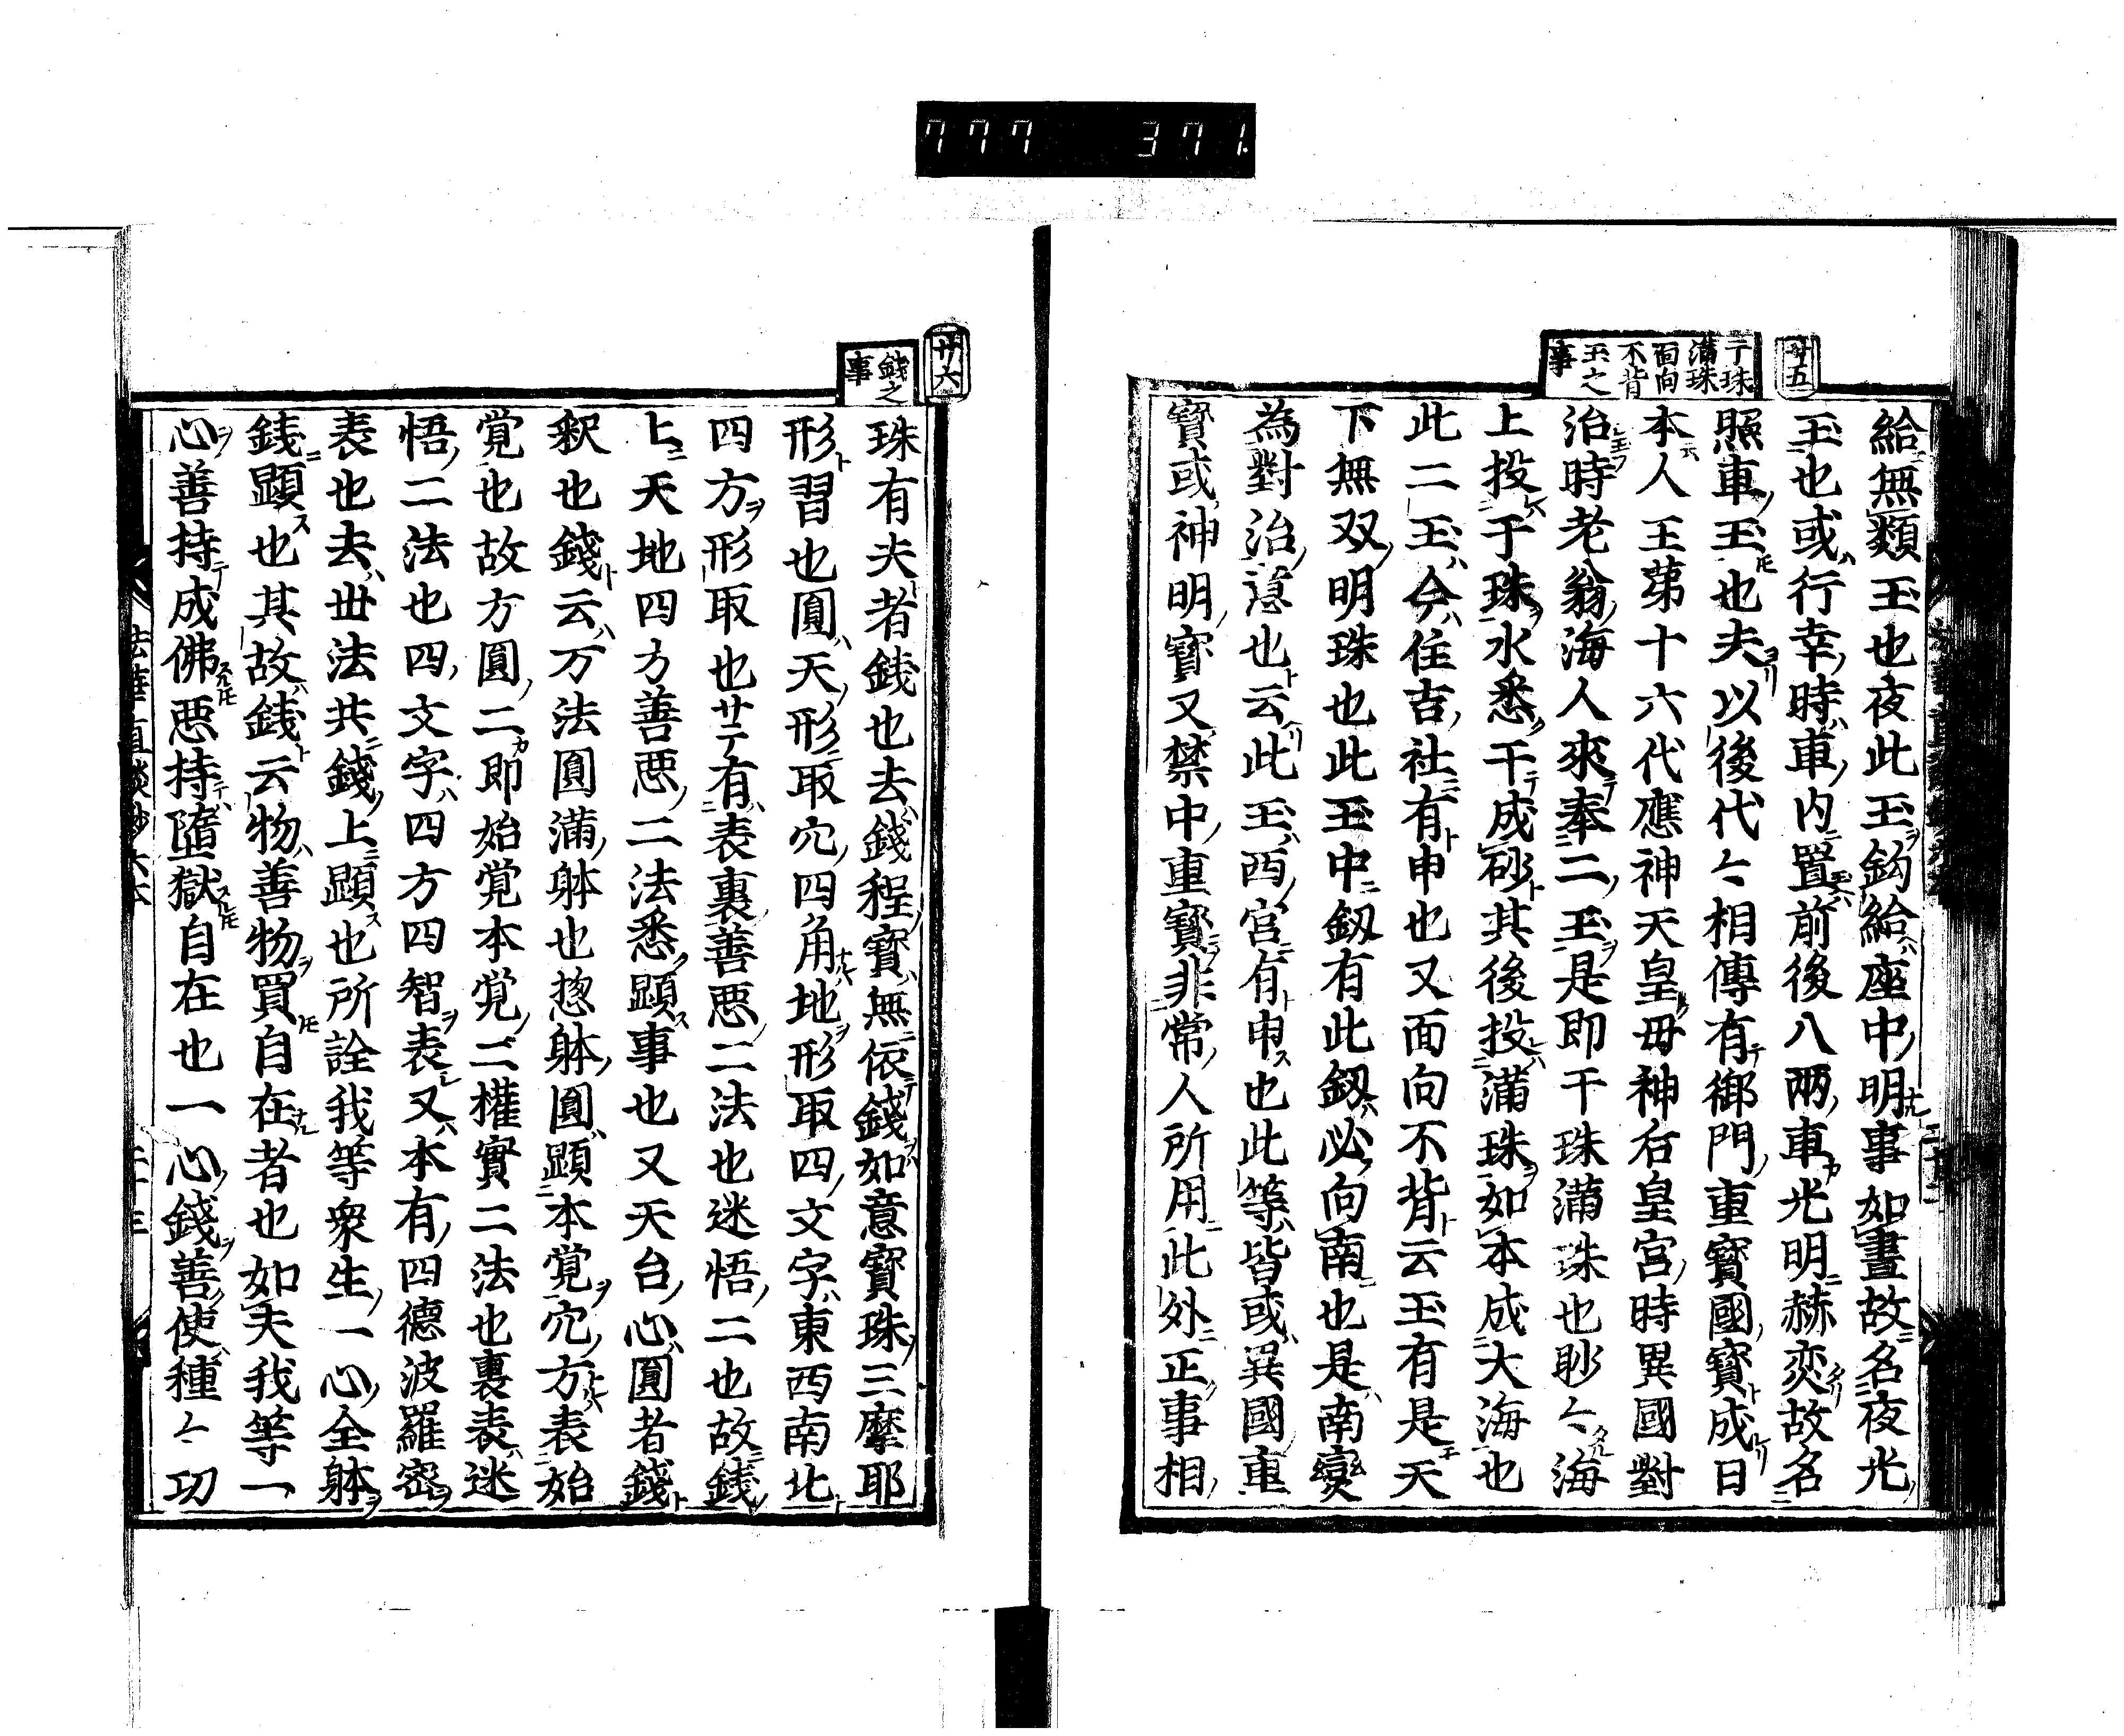 777 371.
廿五
干珠
満珠
面向
不背
玉之
事
給無類玉也夜此玉鈎給座中明事如晝故名夜光
玉也或行幸時車内置前後八兩車光明赫奕故名
照車玉也夫以後代々相傳有御門重寳國寳成日
本人王第十六代應神天皇母神右皇宮時異國對
治時老翁海人來奉二玉是即干珠満珠也眇々海
上投干珠水悉干成砂其後投満珠如本成大海也
此二玉今住吉社有申也又面向不背云玉有是天
下無双明珠也此玉中釼有此釼必向南也是南蠻
為對治意也云此玉西宮有申也此等皆或異國重
寳或神明寳又禁中重寳非常人所用此外正事相
廿六
錢之
事
珠有夫者錢也去錢程寳無依錢如意寳珠三摩耶
形習也圓天形取穴四角地形取四文字東西南北
四方形取也サテ有表裏善悪二法也迷悟二也故錢
上天地四方善悪二法悉顕事也又天台心圓者錢
釈也錢云万法圓満躰也惣躰圓顕本覚穴方表始
覚也故方圓二即始覚本覚二權實二法也裏表迷
悟二法也四文字四方四智表又本有四德波羅密
表也去世法共錢上顕也所詮我等衆生一心全躰
錢顕也其故錢云物善物買自在者也如夫我等一
心善持成佛悪持墮獄自在也一心錢善使種々功